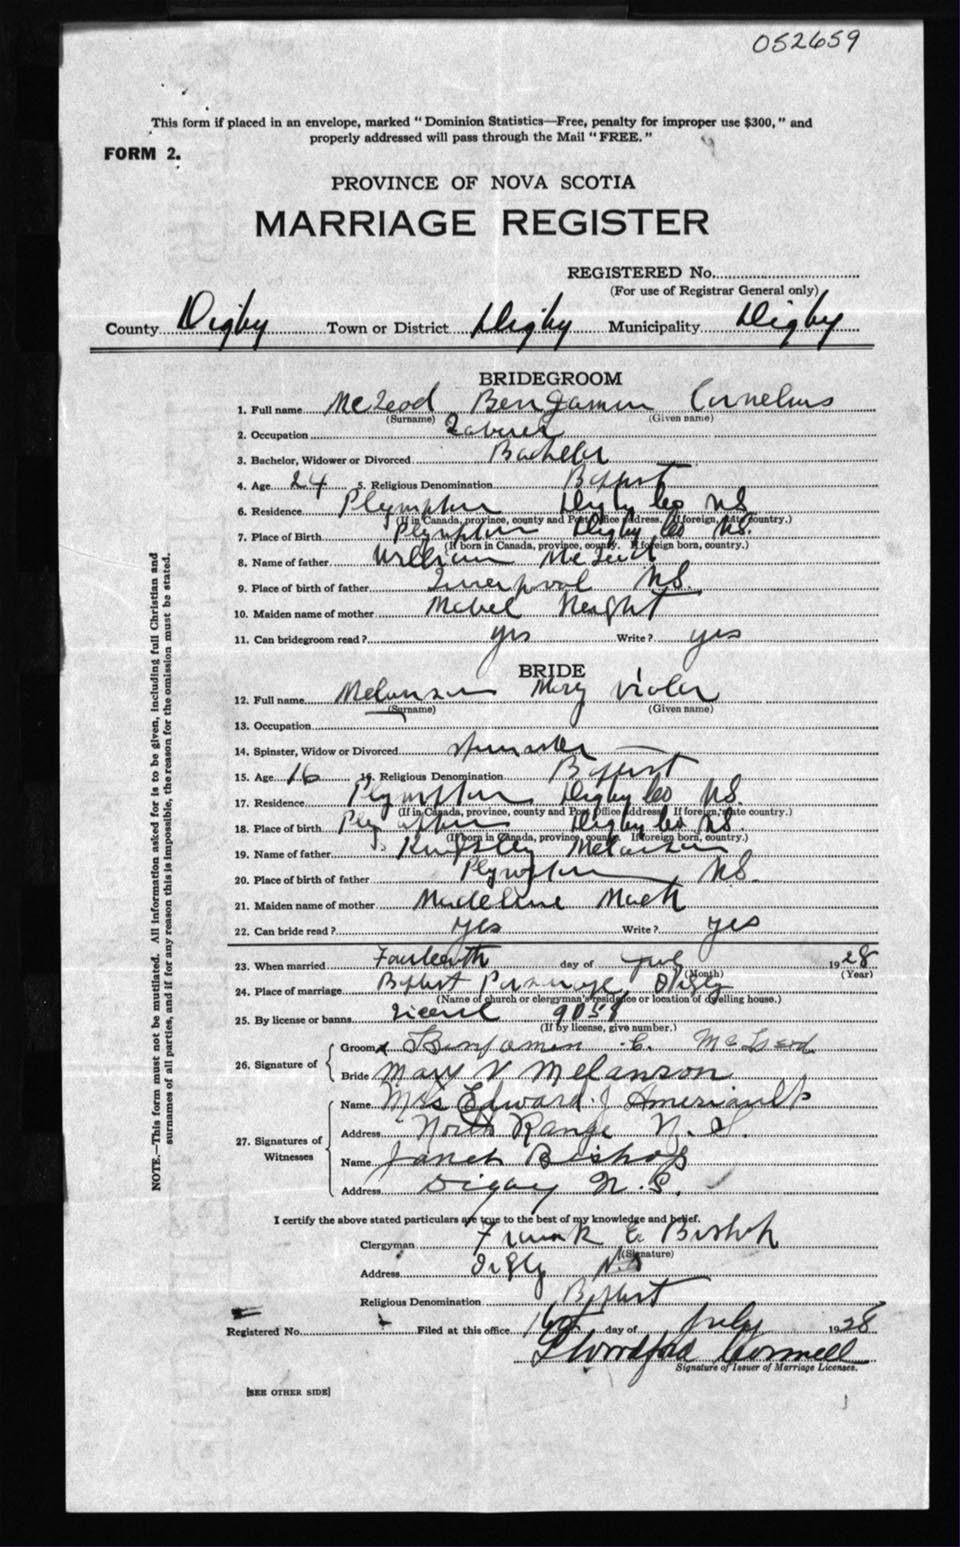 052659
This form if placed in an envelope, marked "Dominion Statistics—Free, penalty for improper use $300," and
properly addressed will pass through the Mail "FREE."
FORM 2.
PROVINCE OF NOVA SCOTIA
MARRIAGE REGISTER
REGISTERED No.
(For use of Registrar General only)
County Digby Town or District Digby Municipality Digby
BRIDEGROOM
1. Full name McLeod Benjamin Cornelius
(Surname) (Given name)
2. Occupation Laborer
3. Bachelor, Widower or Divorced Bachelor
4. Age 24 5. Religious Denomination Baptist
6. Residence Plympton Digby Co NS
(If in Canada, province, county and Post Office address. If foreign, state country.)
7. Place of Birth Plympton Digby Co NS.
(If born in Canada, province, county. If foreign born, country.)
8. Name of father William McLeod
9. Place of birth of father Liverpool NS.
10. Maiden name of mother Mabel Haight
11. Can bridegroom read? yes Write? yes
BRIDE
12. Full name Melanson Mary Viola
(Surname) (Given name)
13. Occupation
14. Spinster, Widow or Divorced Spinster
15. Age 16 16. Religious Denomination Baptist
17. Residence Plympton Digby Co NS.
(If in Canada, province, county and Post Office address. If foreign, state country.)
18. Place of birth Plympton Digby Co NS.
(If born in Canada, province, county. If foreign born, country.)
19. Name of father Kingsley Melanson
20. Place of birth of father Plympton NS.
21. Maiden name of mother Madeline Mack
22. Can bride read? yes Write? yes
23. When married Fourteenth day of July 1928
(Month) (Year)
24. Place of marriage Baptist Parsonage Digby
(Name of church or clergyman's residence or location of dwelling house.)
25. By license or banns License 9058
(If by license, give number.)
26. Signature of
Groom x Benjamin C. McLeod
Bride Mary V Melanson
27. Signatures of Witnesses
Name Mrs Edward J Ameriault
Address North Range N.S.
Name Janet Bishop
Address Digby N.S.
I certify the above stated particulars are true to the best of my knowledge and belief.
Clergyman Frank E. Bishop
(Signature)
Address Digby N.S
Religious Denomination Baptist
Registered No. Filed at this office 16th day of July 1928
Woodford Connell
Signature of Issuer of Marriage Licenses.
[SEE OTHER SIDE]
NOTE.—This form must not be mutilated. All information asked for is to be given, including full Christian and
surnames of all parties, and if for any reason this is impossible, the reason for the omission must be stated.